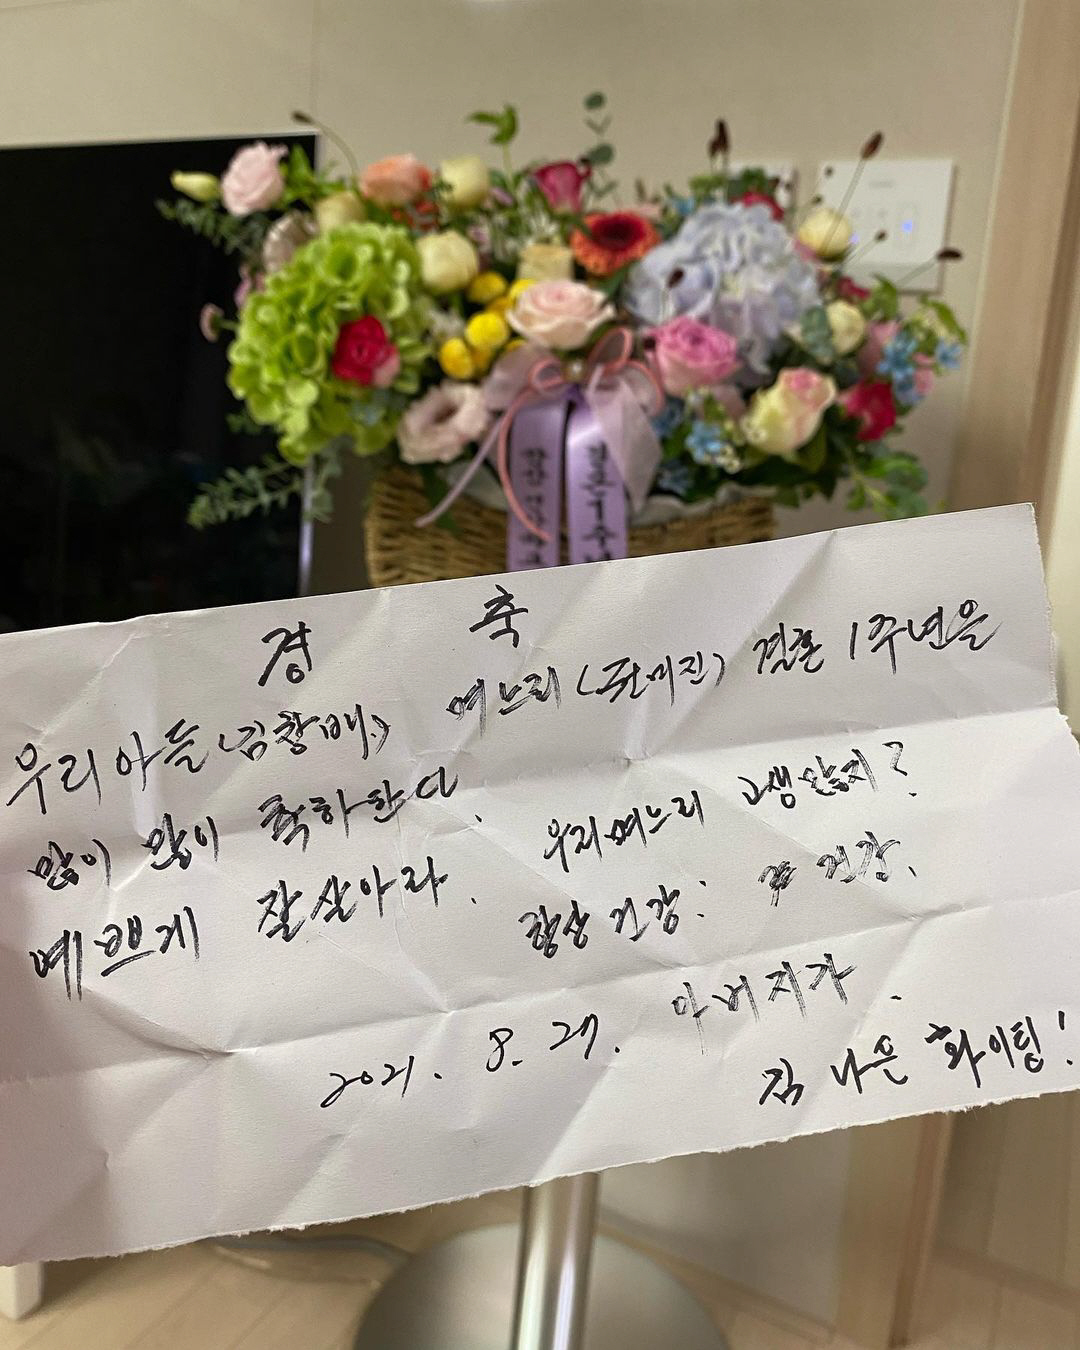 경 축
우리아들(김창배) 며느리(전미진) 결혼 1주년을
많이 많이 축하한다. 우리며느리 고생많지?
예쁘게 잘살아라. 항상 건강: 건강.
2021. 8. 27. 아버지가.
김 나은 화이팅!